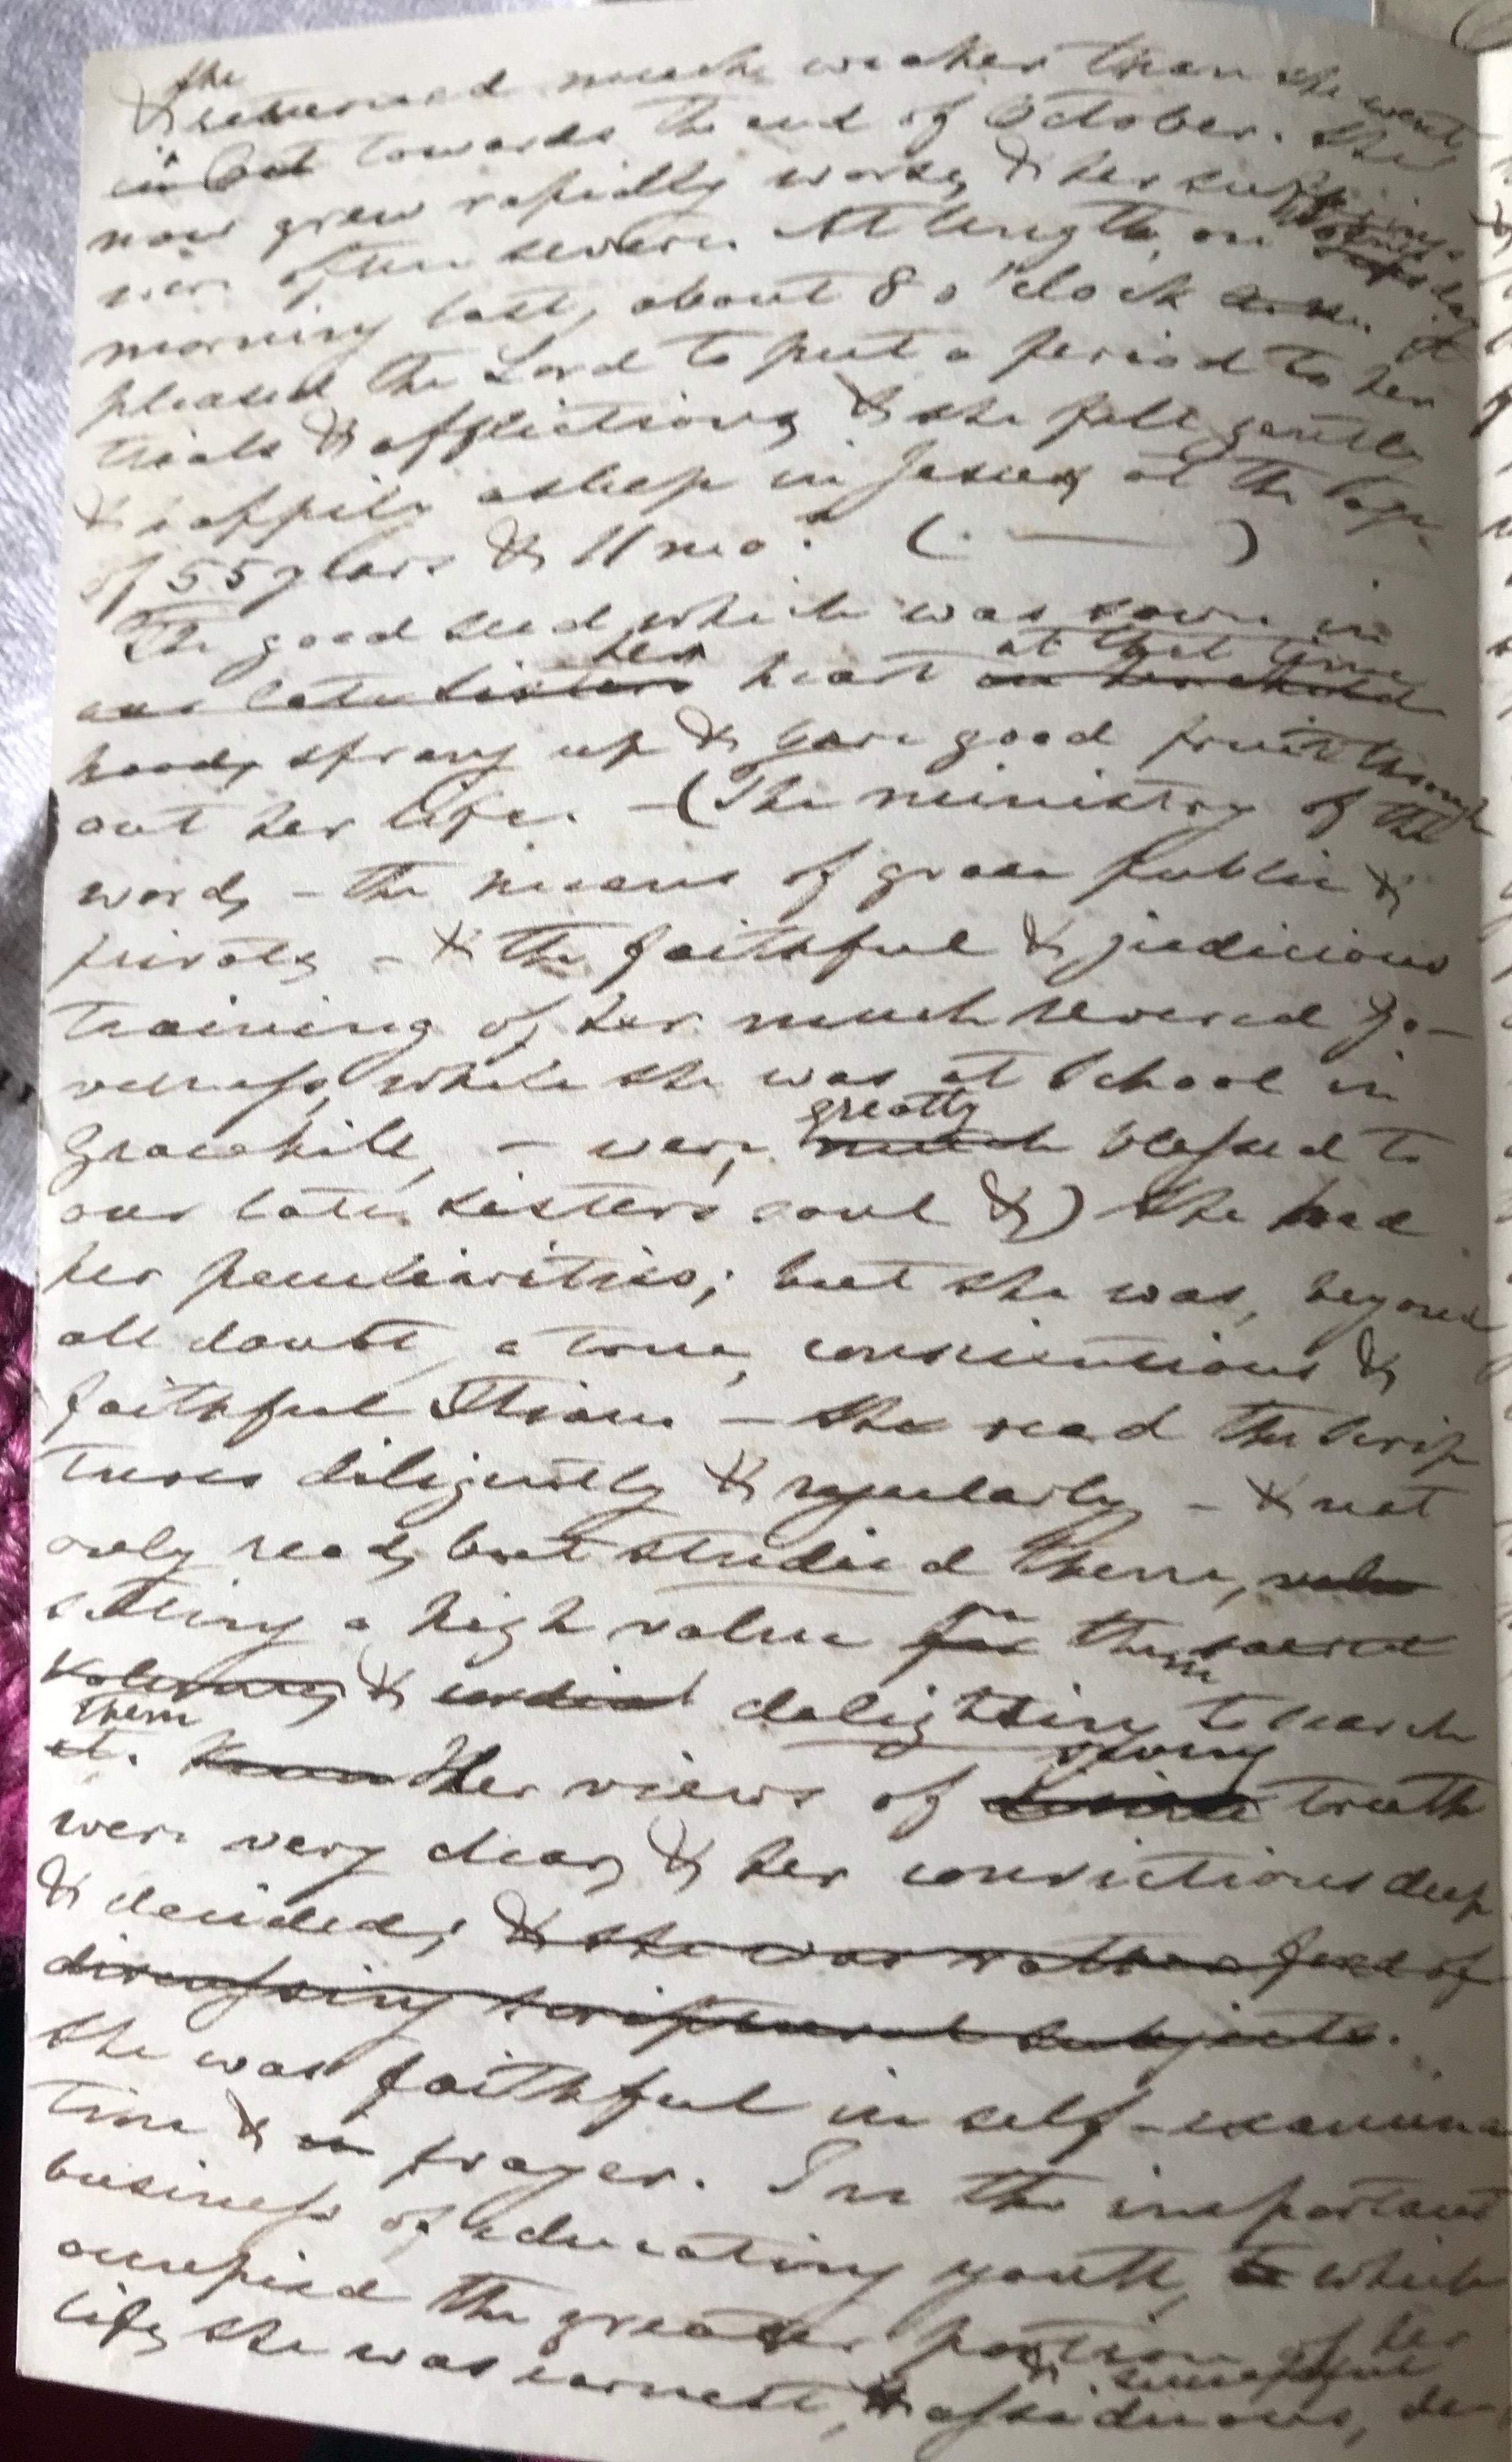 & she returned much weaker than she went
in Oct towards the end of October. She
now grew rapidly worse, & her sufferings
were often severe. At length, on
morning last, about 8 o'clock a.m. it
pleased the Lord to put a period to her
trials & afflictions, & she fell gently
& happily asleep in Jesus, at the age
of 55 years & 11 mo. ( — )
The good seed which was sown in
our late sisters her heart at that time in her child
hood, sprang up & bore good fruit through
out her life. — (The ministry of the
word, — the means of grace public &
private — & the faithful & judicious
training of her much revered Go-
verness, while she was at School in
Gracehill, — were much greatly blessed to
our late sisters soul &) She had
her peculiarities; but she was, beyond
all doubt, a true, conscientious &
faithful Xtian — She read the Scrip
tures diligently & regularly — & not
only read, but studied them,
setting a high value for on them sacred
& delighting to search
them it. Her views of saving divine truth
were very clear, & her convictions deep
& decided; & she was rather fond of
discussing scriptural subjects.
She was faithful in self-examina
tion & in prayer. In the important
business of educating youth, to which
occupied the greater portion of her
life, she was earnest, & assiduous, & de-